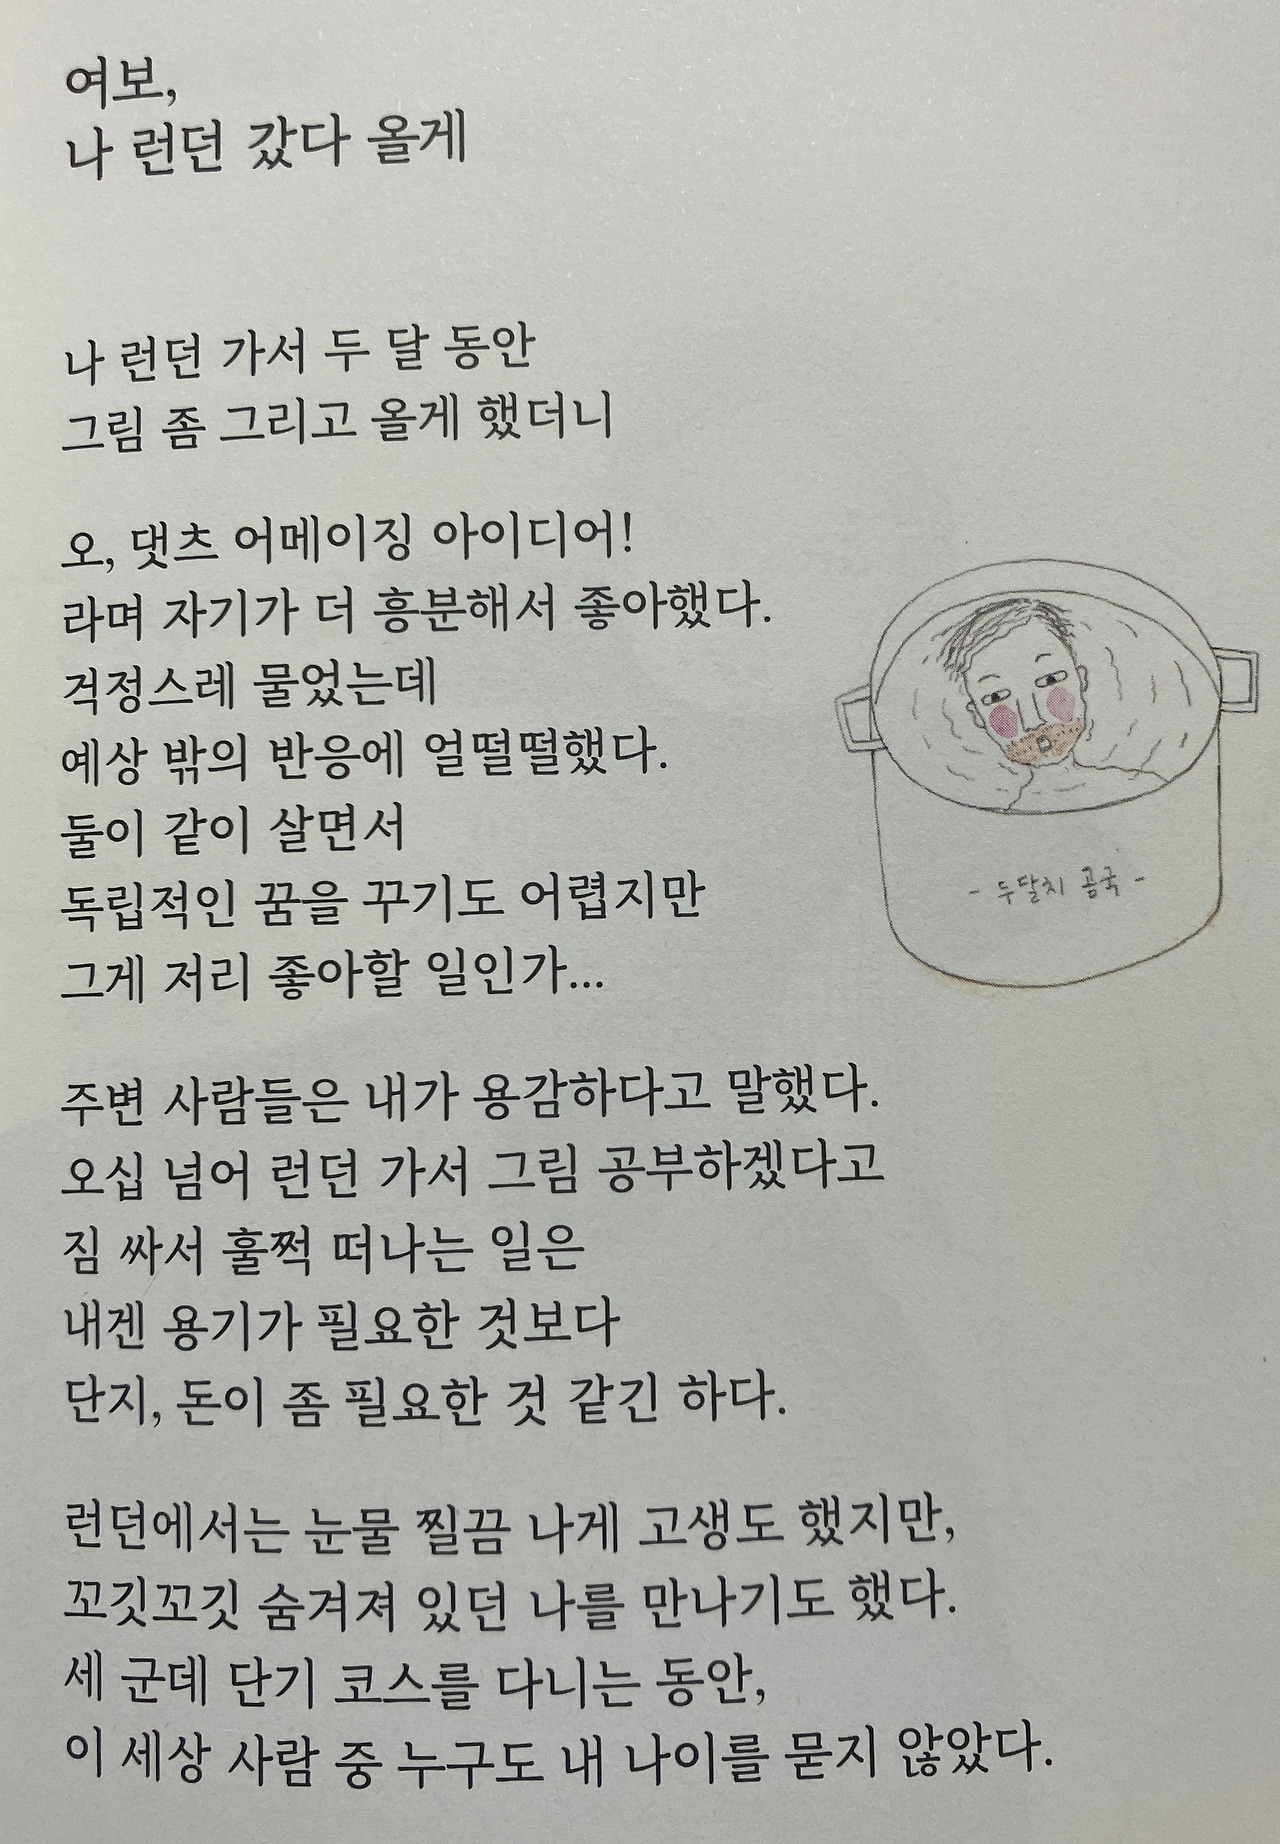 여보,
나 런던 갔다 올게
나 런던 가서 두 달 동안
그림 좀 그리고 올게 했더니
오, 댓츠 어메이징 아이디어!
라며 자기가 더 흥분해서 좋아했다.
걱정스레 물었는데
예상 밖의 반응에 얼떨떨했다.
둘이 같이 살면서
독립적인 꿈을 꾸기도 어렵지만
그게 저리 좋아할 일인가...
- 두달치 곰국 -
주변 사람들은 내가 용감하다고 말했다.
오십 넘어 런던 가서 그림 공부하겠다고
짐 싸서 훌쩍 떠나는 일은
내겐 용기가 필요한 것보다
단지, 돈이 좀 필요한 것 같긴 하다.
런던에서는 눈물 찔끔 나게 고생도 했지만,
꼬깃꼬깃 숨겨져 있던 나를 만나기도 했다.
세 군데 단기 코스를 다니는 동안,
이 세상 사람 중 누구도 내 나이를 묻지 않았다.